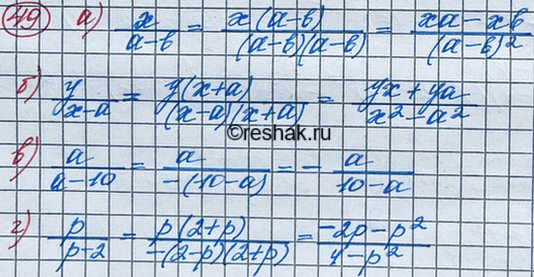 49 а) x/(a-b) = x(a-b)/((a-b)(a-b)) = (xa-xb)/(a-b)²
б) y/(x-a) = y(x+a)/((x-a)(x+a)) = (yx+ya)/(x²-a²)
©reshak.ru
в) a/(a-10) = a/(-(10-a)) = - a/(10-a)
г) p/(p-2) = p(2+p)/(-(2-p)(2+p)) = (-2p-p²)/(4-p²)